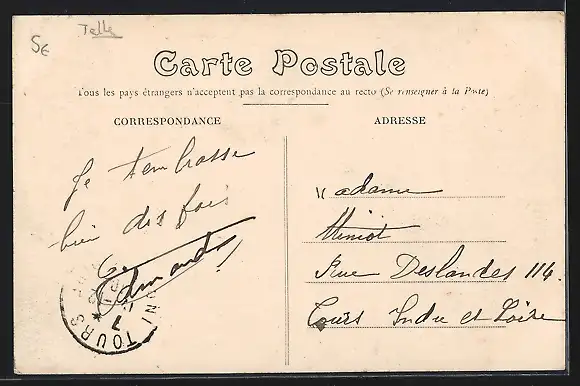 5€
Telle
Carte Postale
Tous les pays étrangers n'acceptent pas la correspondance au recto (Se renseigner à la Poste)
CORRESPONDANCE
ADRESSE
Je t'embrasse
bien des fois
Edmond
TOURS
Madame
Miniot
Rue Deslandes 114.
Tours Indre et Loire